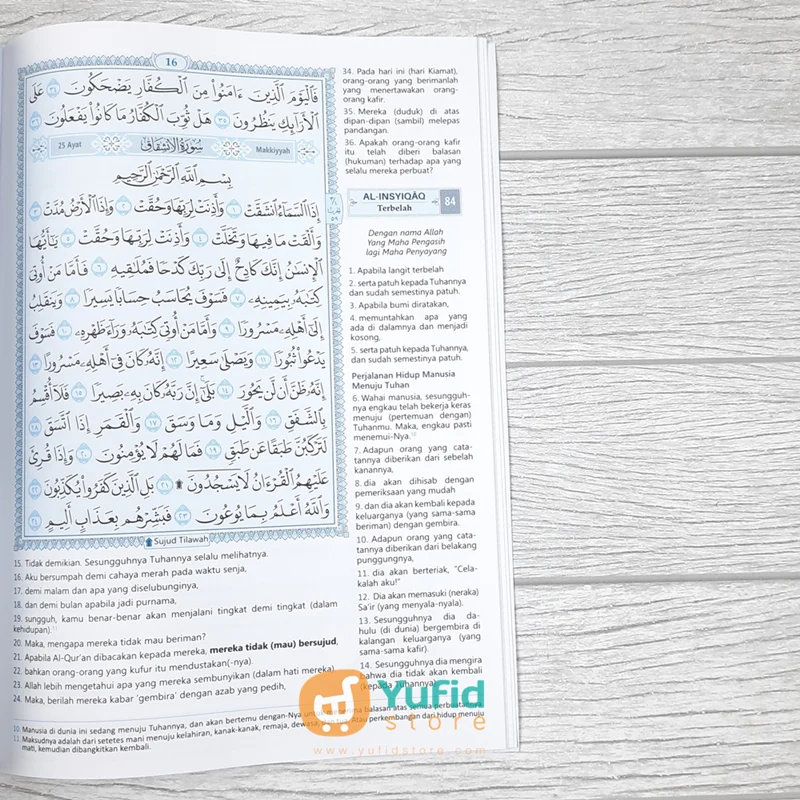 16
فَالْيَوْمَ الَّذِينَ ءَامَنُوا۟ مِنَ الْكُفَّارِ يَضْحَكُونَ ٣٤ عَلَى
الْأَرَآئِكِ يَنْظُرُونَ ٣٥ هَلْ ثُوِّبَ الْكُفَّارُ مَا كَانُوا۟ يَفْعَلُونَ ٣٦
25 Ayat سُورَةُ الْاِنْشِقَاقِ Makkiyyah
بِسْمِ اللَّهِ الرَّحْمَٰنِ الرَّحِيمِ
إِذَا السَّمَآءُ انْشَقَّتْ ١ وَأَذِنَتْ لِرَبِّهَا وَحُقَّتْ ٢ وَإِذَا الْأَرْضُ مُدَّتْ ٣
وَأَلْقَتْ مَا فِيهَا وَتَخَلَّتْ ٤ وَأَذِنَتْ لِرَبِّهَا وَحُقَّتْ ٥ يَٰٓأَيُّهَا
الْإِنْسَٰنُ إِنَّكَ كَادِحٌ إِلَىٰ رَبِّكَ كَدْحًا فَمُلَٰقِيهِ ٦ فَأَمَّا مَنْ أُوتِىَ
كِتَٰبَهُۥ بِيَمِينِهِۦ ٧ فَسَوْفَ يُحَاسَبُ حِسَابًا يَسِيرًا ٨ وَيَنْقَلِبُ
إِلَىٰٓ أَهْلِهِۦ مَسْرُورًا ٩ وَأَمَّا مَنْ أُوتِىَ كِتَٰبَهُۥ وَرَآءَ ظَهْرِهِۦ ١٠ فَسَوْفَ
يَدْعُوا۟ ثُبُورًا ١١ وَيَصْلَىٰ سَعِيرًا ١٢ إِنَّهُۥ كَانَ فِىٓ أَهْلِهِۦ مَسْرُورًا ١٣
إِنَّهُۥ ظَنَّ أَنْ لَنْ يَحُورَ ١٤ بَلَىٰٓ إِنَّ رَبَّهُۥ كَانَ بِهِۦ بَصِيرًا ١٥ فَلَآ أُقْسِمُ
بِالشَّفَقِ ١٦ وَالَّيْلِ وَمَا وَسَقَ ١٧ وَالْقَمَرِ إِذَا اتَّسَقَ ١٨
لَتَرْكَبُنَّ طَبَقًا عَنْ طَبَقٍ ١٩ فَمَا لَهُمْ لَا يُؤْمِنُونَ ٢٠ وَإِذَا قُرِئَ
عَلَيْهِمُ الْقُرْءَانُ لَا يَسْجُدُونَ ۩ ٢١ بَلِ الَّذِينَ كَفَرُوا۟ يُكَذِّبُونَ ٢٢
وَاللَّهُ أَعْلَمُ بِمَا يُوعُونَ ٢٣ فَبَشِّرْهُمْ بِعَذَابٍ أَلِيمٍ ٢٤
Sujud Tilawah
34. Pada hari ini (hari Kiamat),
orang-orang yang berimanlah
yang menertawakan orang-
orang kafir.
35. Mereka (duduk) di atas
dipan-dipan (sambil) melepas
pandangan.
36. Apakah orang-orang kafir
itu telah diberi balasan
(hukuman) terhadap apa yang
selalu mereka perbuat?
AL-INSYIQÂQ 84
Terbelah
Dengan nama Allah
Yang Maha Pengasih
lagi Maha Penyayang
1. Apabila langit terbelah
2. serta patuh kepada Tuhannya
dan sudah semestinya patuh.
3. Apabila bumi diratakan,
4. memuntahkan apa yang
ada di dalamnya dan menjadi
kosong,
5. serta patuh kepada Tuhannya,
dan sudah semestinya patuh.
Perjalanan Hidup Manusia
Menuju Tuhan
6. Wahai manusia, sesungguh-
nya engkau telah bekerja keras
menuju (pertemuan dengan)
Tuhanmu. Maka, engkau pasti
menemui-Nya.10
7. Adapun orang yang cata-
tannya diberikan dari sebelah
kanannya,
8. dia akan dihisab dengan
pemeriksaan yang mudah
9. dan dia akan kembali kepada
keluarganya (yang sama-sama
beriman) dengan gembira.
10. Adapun orang yang cata-
tannya diberikan dari belakang
punggungnya,
11. dia akan berteriak, "Cela-
kalah aku!"
12. Dia akan memasuki (neraka)
Sa'ir (yang menyala-nyala).
13. Sesungguhnya dia da-
hulu (di dunia) bergembira di
kalangan keluarganya (yang
sama-sama kafir).
14. Sesungguhnya dia mengira
bahwa dia tidak akan kembali
(kepada Tuhannya).
15. Tidak demikian. Sesungguhnya Tuhannya selalu melihatnya.
16. Aku bersumpah demi cahaya merah pada waktu senja,
17. demi malam dan apa yang diselubunginya,
18. dan demi bulan apabila jadi purnama,
19. sungguh, kamu benar-benar akan menjalani tingkat demi tingkat (dalam
kehidupan).11
20. Maka, mengapa mereka tidak mau beriman?
21. Apabila Al-Qur'an dibacakan kepada mereka, mereka tidak (mau) bersujud,
22. bahkan orang-orang yang kufur itu mendustakan(-nya).
23. Allah lebih mengetahui apa yang mereka sembunyikan (dalam hati mereka).
24. Maka, berilah mereka kabar 'gembira' dengan azab yang pedih,
10. Manusia di dunia ini sedang menuju Tuhannya, dan akan bertemu dengan-Nya untuk menerima balasan atas semua perbuatannya.
11. Maksudnya adalah dari setetes mani menuju kelahiran, kanak-kanak, remaja, dewasa, dan tua. Atau perkembangan dari hidup menuju
mati, kemudian dibangkitkan kembali.
Yufid
store
www.yufidstore.com